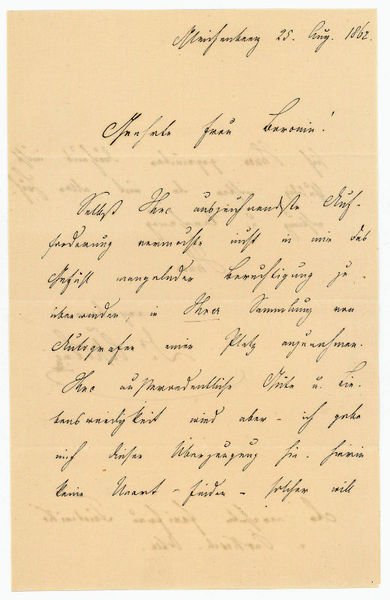 Gleichenberg 25. Aug. 1862.
Geehrte Frau Baronin!
Selbst Ihre auszeichnendste Auf-
forderung vermochte nicht in mir das
Gefühl mangelnder Berechtigung zu
überwinden, in Ihrer Sammlung von
Autografen einen Platz anzunehmen.
Ihre außerordentliche Güte u. Lie-
benswürdigkeit wird aber – ich gebe
mich dieser Überzeugung hin – hierin
keine Unart – finden – solcher will